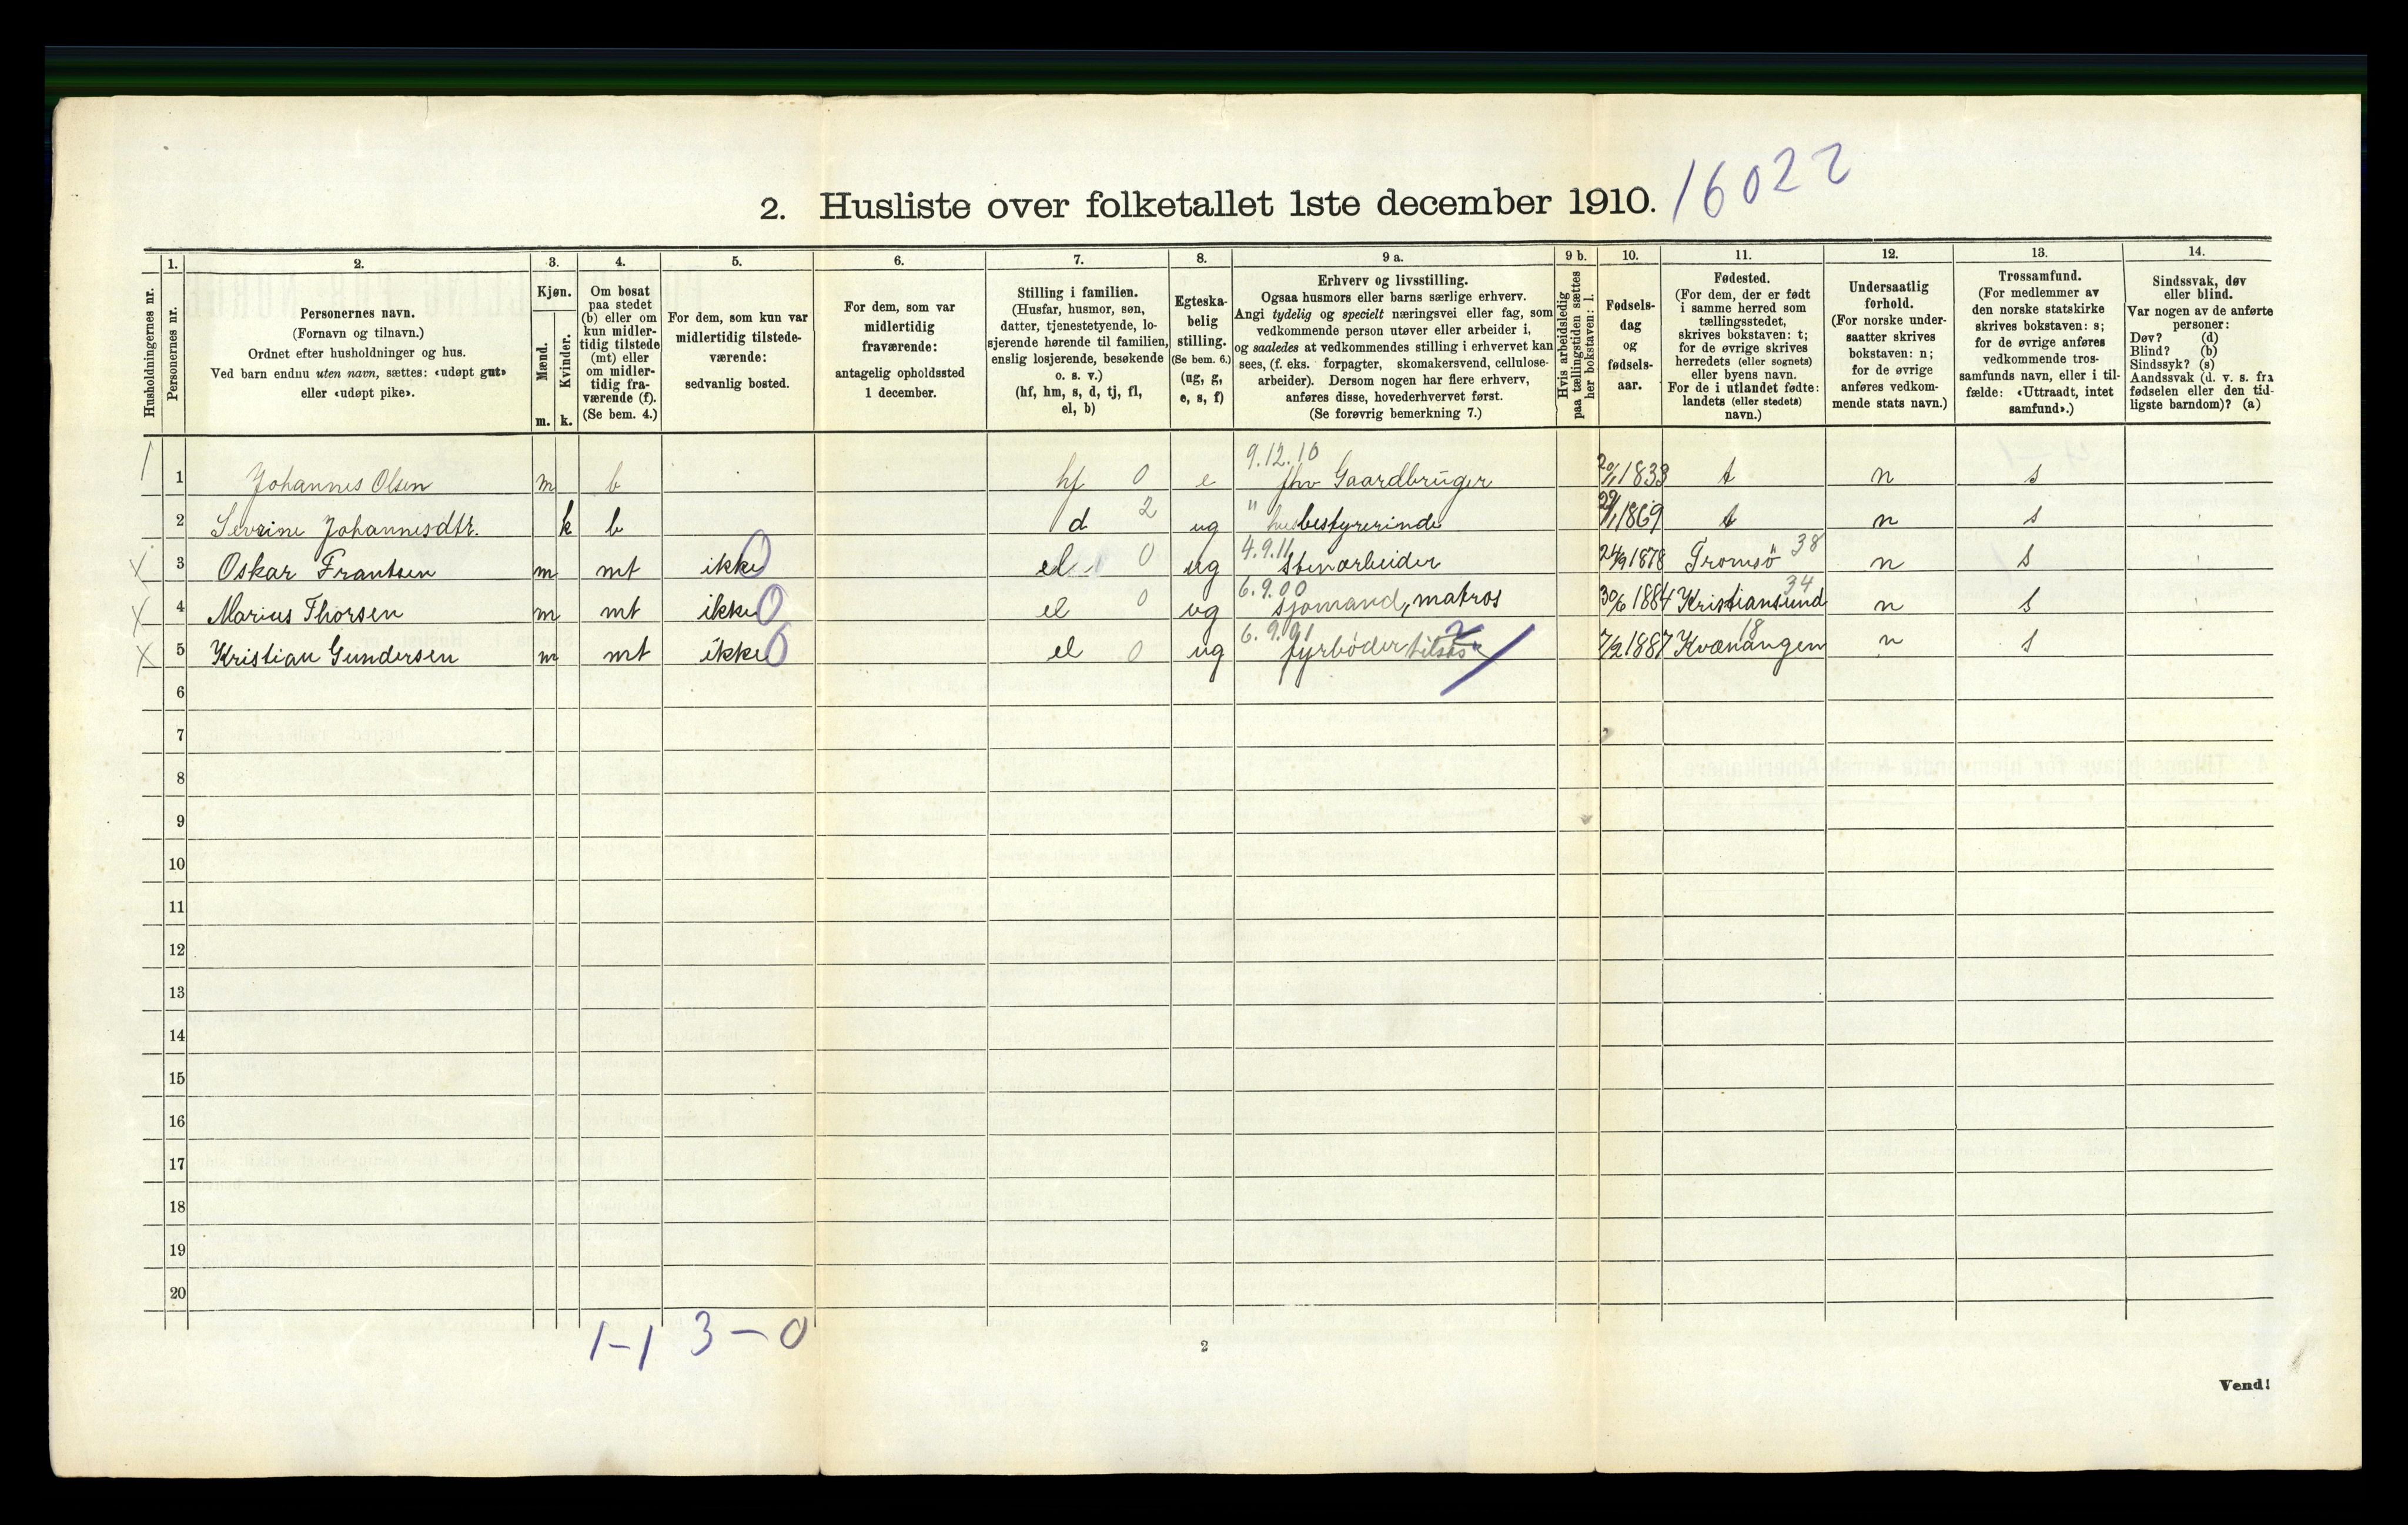 2. Husliste over folketallet 1ste december 1910. 16022
1. 2. 3. 4. 5. 6. 7. 8. 9 a. 9 b. 10. 11. 12. 13. 14.
Husholdningernes nr.
Personernes nr.
Personernes navn.
(Fornavn og tilnavn.)
Ordnet efter husholdninger og hus.
Ved barn endnu uten navn, sættes: «udøpt gut»
eller «udøpt pike».
Kjøn.
Mænd.
Kvinder.
m. k.
Om bosat
paa stedet
(b) eller om
kun midler-
tidig tilstede
(mt) eller
om midler-
tidig fra-
værende (f).
(Se bem. 4.)
For dem, som kun var
midlertidig tilstede-
værende:
sedvanlig bosted.
For dem, som var
midlertidig
fraværende:
antagelig opholdssted
1 december.
Stilling i familien.
(Husfar, husmor, søn,
datter, tjenestetyende, lo-
sjerende hørende til familien,
enslig losjerende, besøkende
o. s. v.)
(hf, hm, s, d, tj, fl,
el, b)
Egteska-
belig
stilling.
(Se bem. 6.)
(ug, g,
e, s, f)
Erhverv og livsstilling.
Ogsaa husmors eller barns særlige erhverv.
Angi tydelig og specielt næringsvei eller fag, som
vedkommende person utøver eller arbeider i,
og saaledes at vedkommendes stilling i erhvervet kan
sees, (f. eks. forpagter, skomakersvend, cellulose-
arbeider). Dersom nogen har flere erhverv,
anføres disse, hovederhvervet først.
(Se forøvrig bemerkning 7.)
Hvis arbeidsledig
paa tællingstiden sættes
her bokstaven: l.
Fødsels-
dag
og
fødsels-
aar.
Fødested.
(For dem, der er født
i samme herred som
tællingsstedet,
skrives bokstaven: t;
for de øvrige skrives
herredets (eller sognets)
eller byens navn.
For de i utlandet fødte:
landets (eller stedets)
navn.)
Undersaatlig
forhold.
(For norske under-
saatter skrives
bokstaven: n;
for de øvrige
anføres vedkom-
mende stats navn.)
Trossamfund.
(For medlemmer av
den norske statskirke
skrives bokstaven: s;
for de øvrige anføres
vedkommende tros-
samfunds navn, eller i til-
fælde: «Uttraadt, intet
samfund».)
Sindssvak, døv
eller blind.
Var nogen av de anførte
personer:
Døv? (d)
Blind? (b)
Sindssyk? (s)
Aandssvak (d. v. s. fra
fødselen eller den tid-
ligste barndom)? (a)
9.12.10
1 1 Johannes Olsen m b hf 0 e fhv Gaardbruger 20/1 1833 t n s
2 Sevrine Johannesdtr. k b d 2 ug " bestyrerinde 29/1 1869 t n s
4.9.11 38
X 3 Oskar Frantsen m mt ikke 0 el 0 ug Stenarbeider 24/9 1878 Tromsö n s
6.9.00 34
X 4 Marius Thorsen m mt ikke 0 el 0 ug sjømand, matros 30/6 1884 Kristiansund n s
6.9.01 18
X 5 Kristian Gundersen m mt ikke 0 el 0 ug fyrbøder tilsøs 7/2 1887 Kvænangen n s
6
7
8
9
10
11
12
13
14
15
16
17
18
19
20
1-1 3-0
2
Vend!